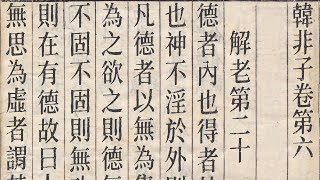 韓非子卷第六
解老第二十
德者內也得者
也神不淫於外則
凡德者以無為
為之欲之則德無
不固不固則無
則在有德故曰
無思為虛者謂其